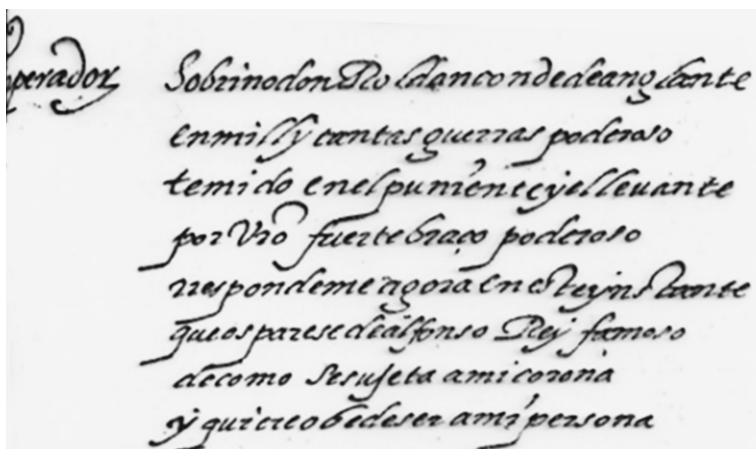 perador
Sobrino don Roldan conde de anglante
en mill y tantas guerras poderoso
temido en el punïente y el levante
por vro fuerte braço poderoso
rrespondeme agora en este ynstante
que os parese de alfonso Rey famoso
de como se sujeta a mi corona
y quiere obedeser a mi persona